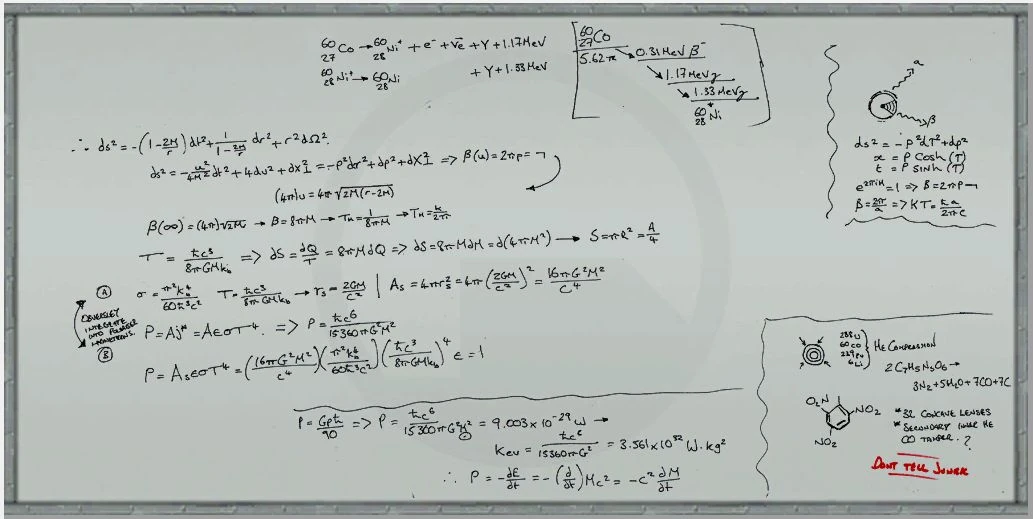 ⁶⁰₂₇Co → ⁶⁰₂₈Ni* + e⁻ + ν̅e + γ + 1.17MeV
⁶⁰₂₈Ni* → ⁶⁰₂₈Ni + γ + 1.33MeV
⁶⁰₂₇Co
0.31MeV β⁻
1.17MeVγ
1.33MeVγ
⁶⁰₂₈Ni
∴ ds² = -(1-2M/r)dt² + 1/(1-2M/r) dr² + r²dΩ².
(4π)u = 4π√2M(r-2M)
β(∞) = (4π)√2M r → β = 8πM → TH = 1/8πM → TH = k/2π
T = ħc³/8πGMkb => dS = dQ/T = 8πMdQ => dS = 8πMdM = d(4πM²) → S = πR² = A/4
A
σ = π²kb⁴/60ħ³c² T = ħc³/8πGMkb → rs = 2GM/c² | As = 4πrs² = 4π(2GM/c²)² = 16πG²M²/c⁴
INTEGRATE
INTO
B
P = Aj* = AεσT⁴. => P = ħc⁶/15360πG²M²
P = AsεσT⁴ = (16πG²M²/c⁴)(π²kb⁴/60ħ³c²)(ħc³/8πGMkb)⁴ ε = 1
P = Gρħ/90 => P = ħc⁶/15360πG²M² = 9.003×10⁻²⁹W →
Kev = ħc⁶/15360πG² = 3.561×10³²W·kg²
∴ P = -dE/dt = -(d/dt)Mc² = -c² dM/dt
α
β
ds² = -ρ²dT² + dρ²
x = ρ Cosh(T)
t = ρ SINh(T)
β = 2π/a => KT = ħa/2πc
238U
60CO
6Li
HE COMPRESSION
2C7H5N3O6 →
3N2+5H2O+7CO+7C
O2N
NO2
NO2
*32 CONCAVE LENSES
*SECONDARY INNER HE
CO TAMPER. ?
DONT TELL